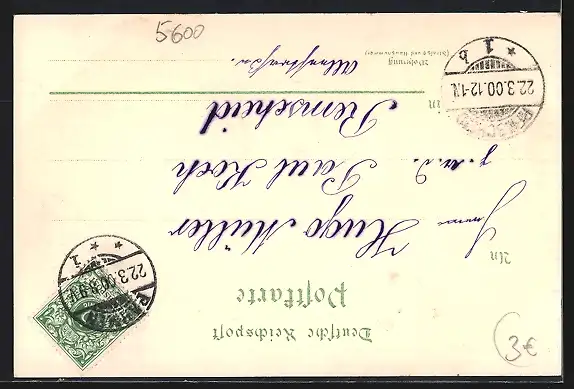 Deutsche Reichspost
Postkarte
An
Hugo Müller
Paul Koch
in
Remscheid
Wohnung
(Straße und Hausnummer)
22.3.00.
* *
1
22.3.00.12-1N.
* 1 b
5600
3€